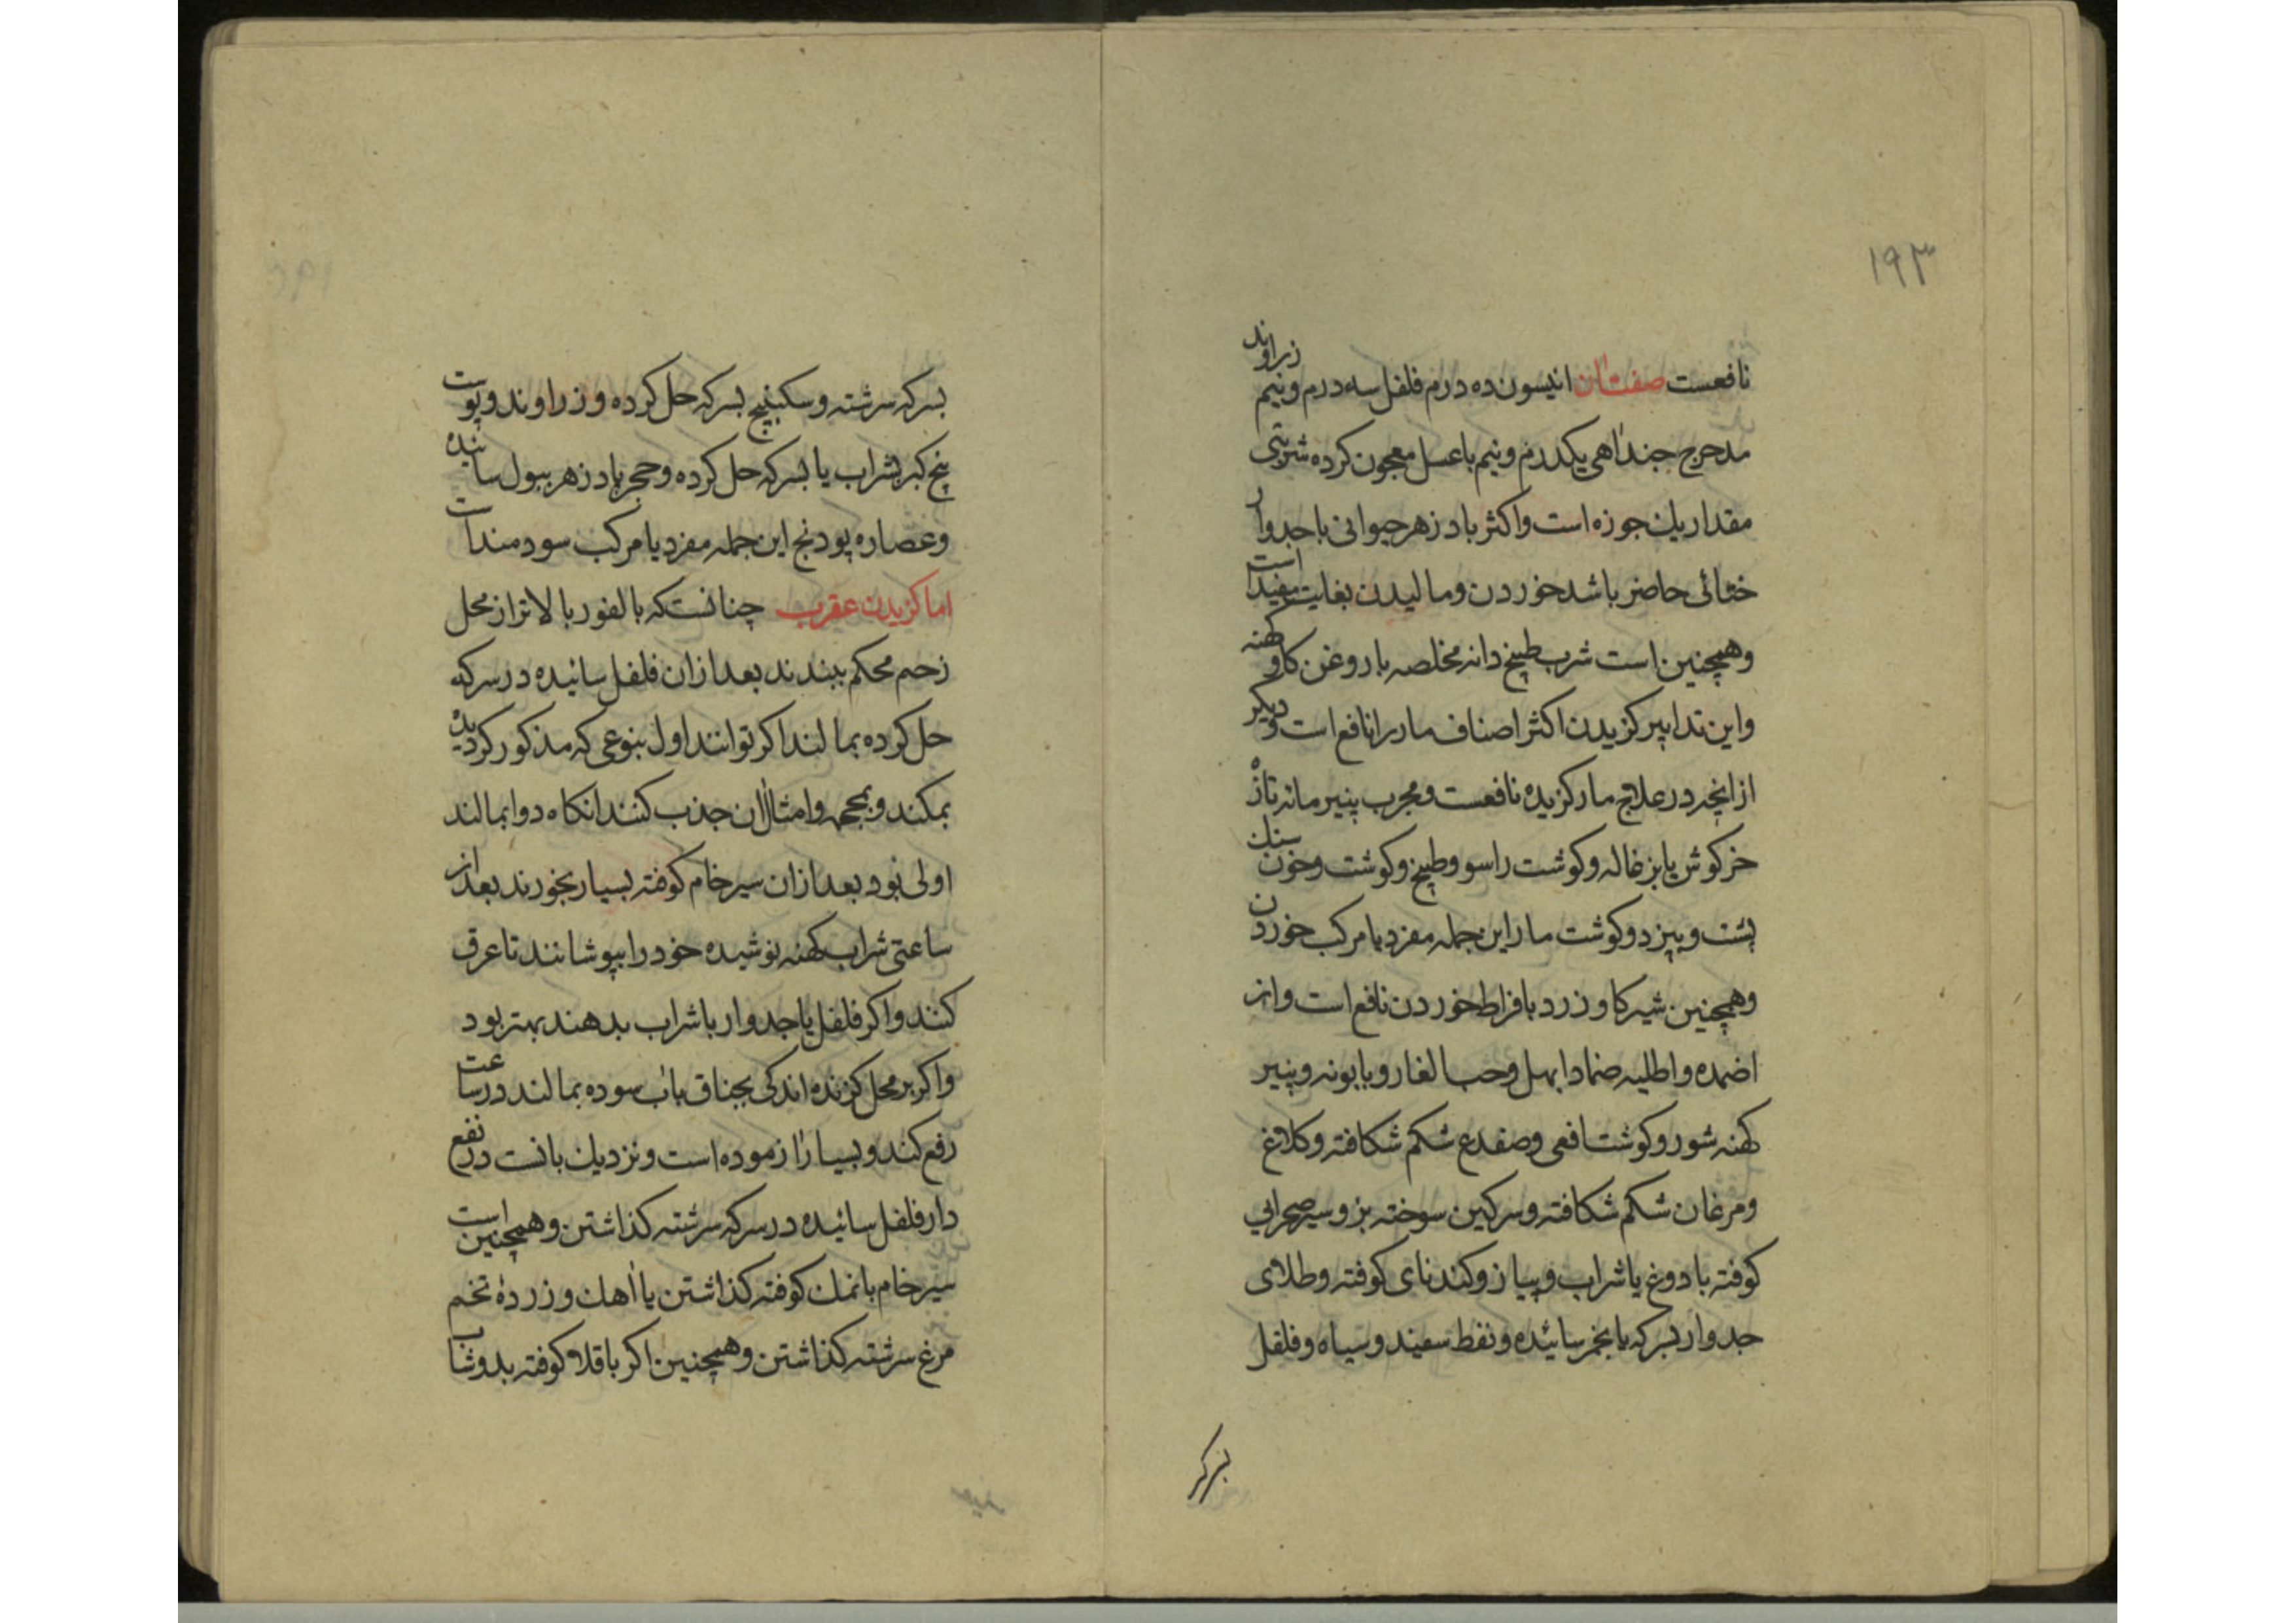 ۱۹۳
نافعست صفت ان انیسون ده درم فلفل سه درم و نیم زراوند
مدحرج جنداهی یکدرم و نیم با عسل معجون کرده شربتی
مقدار یك جوزه است و اکثر بادزهر حیوانی با جدوار
ختائی حاضر باشد خوردن و مالیدن بغایت مفید است
وهمچنین است شرب طبیخ دانه مخلصه با روغن کاو کهنه
واین تدابیر کزیدن اکثر اصناف مار را نافع است و دیکر
از انچه در علاج مار کزیده نافعست و مجرب پنیر مانه تازه
خرکوش یا بزغاله و کوشت راسو و طبیخ و کوشت و خون سنك
پشت و پیزد و کوشت مار این جمله مفرد یا مرکب خوردن
وهمچنین شیر کاو زرد بافراط خوردن نافع است و از
اضمده و اطلیه ضماد ابهل و حب الغار و بابونه و پنیر
کهنه شور و کوشت افعی و ضفدع شکم شکافته و کلاغ
و مرغان شکم شکافته و سرکین سوخته بز و سیر صحرایی
کوفته با دوغ یا شراب و پیاز و کندنای کوفته و طلای
جدوار بسرکه یا بخمر سائیده و نفط سفید و سیاه و فلفل
بسرکه
بسرکه سرشته و سکبینج بسرکه حل کرده و زراوند و پوست
بیخ کبر بشراب یا بسرکه حل کرده و حجر بادزهر ببول سائیده
وعصاره پودنج این جمله مفرد یا مرکب سودمند است
اما کزیدن عقرب چنانست که بالفور بالاتر از محل
زخم محکم ببندند بعد از ان فلفل سائیده در سرکه
حل کرده بمالند اکر توانند اول بنوعی که مذکور کردیده
بمکند و بمحجمه و امثال ان جذب کنند انکاه دوا بمالند
اولی بود بعد از ان سیر خام کوفته بسیار بخورند بعد از
ساعتی شراب کهنه نوشیده خود را بپوشانند تا عرق
کنند و اکر فلفل یا جدوار با شراب بدهند بهتر بود
واکر بر محل کزنده اندکی بجناق باب سوده بمالند در ساعت
رفع کند و بسیار ازموده است و نزدیك بانست در نفع
دارفلفل سائیده در سرکه سرشته کذاشتن و همچنین است
سیر خام با نمك کوفته کذاشتن یا اهك و زرده تخم
مرغ سرشته کذاشتن و همچنین اکر باقلا کوفته بدوشاب